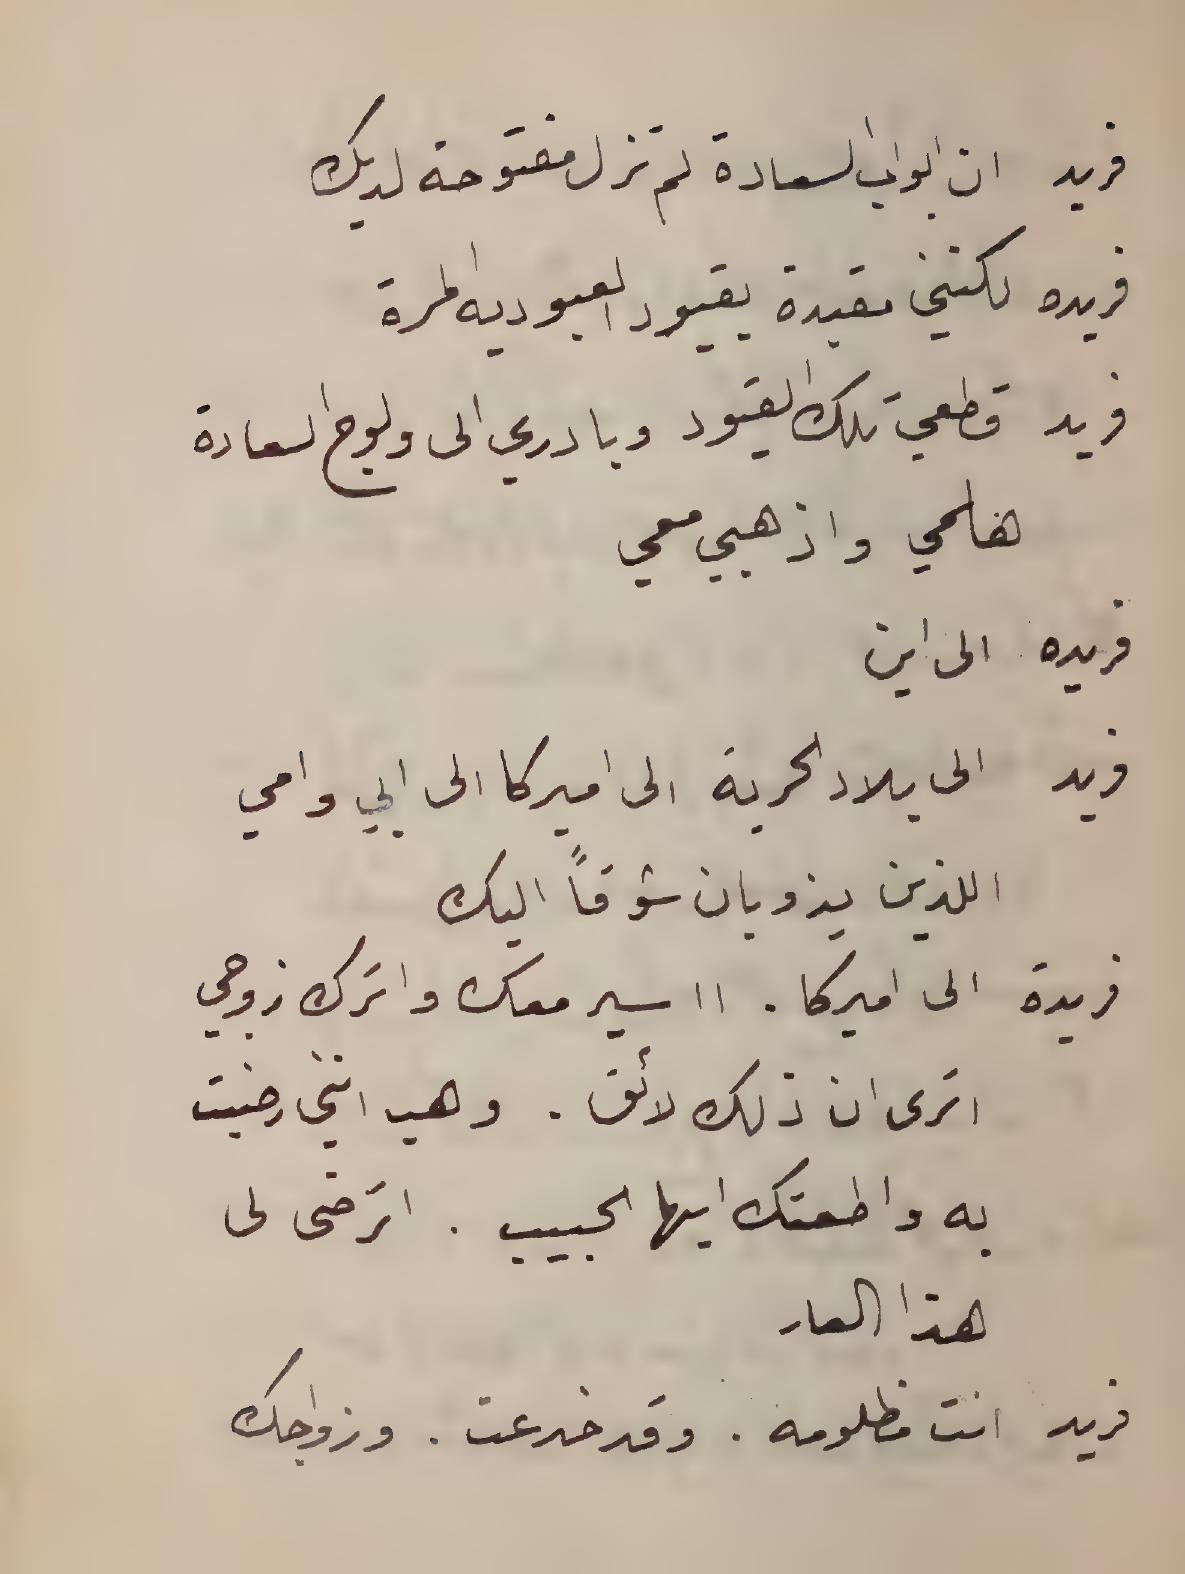 فريد ان ابواب السعادة لم تزل مفتوحة لديك
فريده لكنني مقيدة بقيود العبوديه المرة
فريد قطعي تلك القيود وبادري الى ولوج السعادة
هلمي واذهبي معي
فريده الى اين
فريد الى بلاد الحرية الى اميركا الى ابي وامي
اللذين يذوبان شوقاً اليك
فريدة الى اميركا . ااسير معك واترك زوجي
اترى ان ذلك لائق . وهب انني رضيت
به واطعتك ايها الحبيب . اترضى لى
هذا العار
فريد انت مظلومه . وقد خدعت . وزواجك